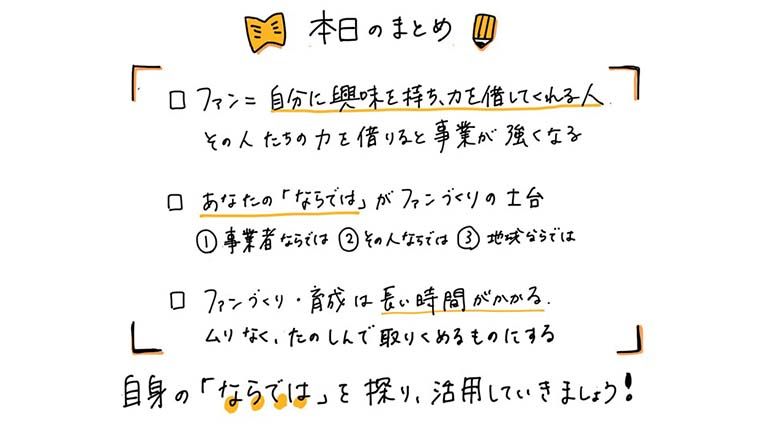 本日のまとめ
□ ファン=自分に興味を持ち、力を借してくれる人
その人たちの力を借りると事業が強くなる
□ あなたの「ならでは」がファンづくりの土台
① 事業者ならでは ② その人ならでは ③ 地球ならでは
□ ファンづくり・育成は長い時間がかかる.
ムリなく、たのしんで取りくめるものにする
自身の「ならでは」を探り、活用していきましょう!